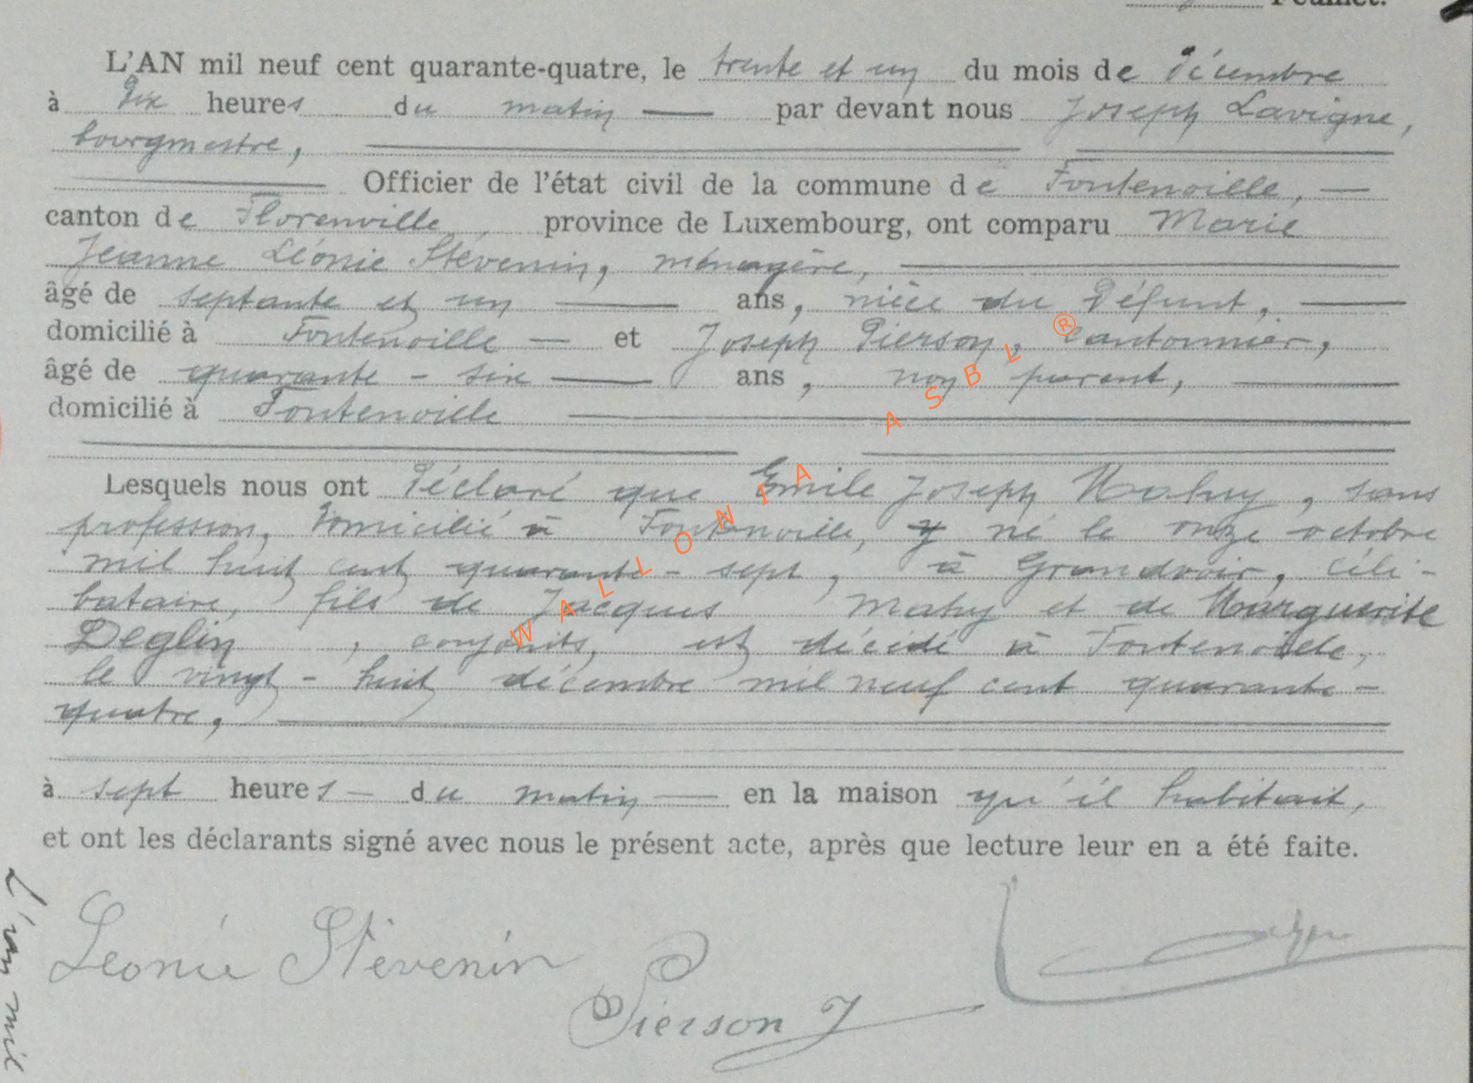 Feuillet.
L'AN mil neuf cent quarante-quatre, le trente et un du mois de décembre
à dix heures du matin par devant nous Joseph Lavigne,
bourgmestre,
Officier de l'état civil de la commune de Fontenoille,
canton de Florenville, province de Luxembourg, ont comparu Marie
Jeanne Léonie Stévenin, ménagère,
âgé de septante et un ans, nièce du défunt,
domicilié à Fontenoille et Joseph Pierson, cantonnier,
âgé de quarante-six ans, non parent,
domicilié à Fontenoille
Lesquels nous ont déclaré que Emile Joseph Mahy, sans
profession, domicilié à Fontenoille, y né le onze octobre
mil huit cent quarante-sept, à Grandvoir, céli-
bataire, fils de Jacques Mahy et de Marguerite
Deglin, conjoints, est décédé à Fontenoille,
le vingt-huit décembre mil neuf cent quarante-
quatre,
à sept heures du matin en la maison qu'il habitait,
et ont les déclarants signé avec nous le présent acte, après que lecture leur en a été faite.
Léonie Stévenin
Pierson J
L'an mil
WALLONIA ASBL ®